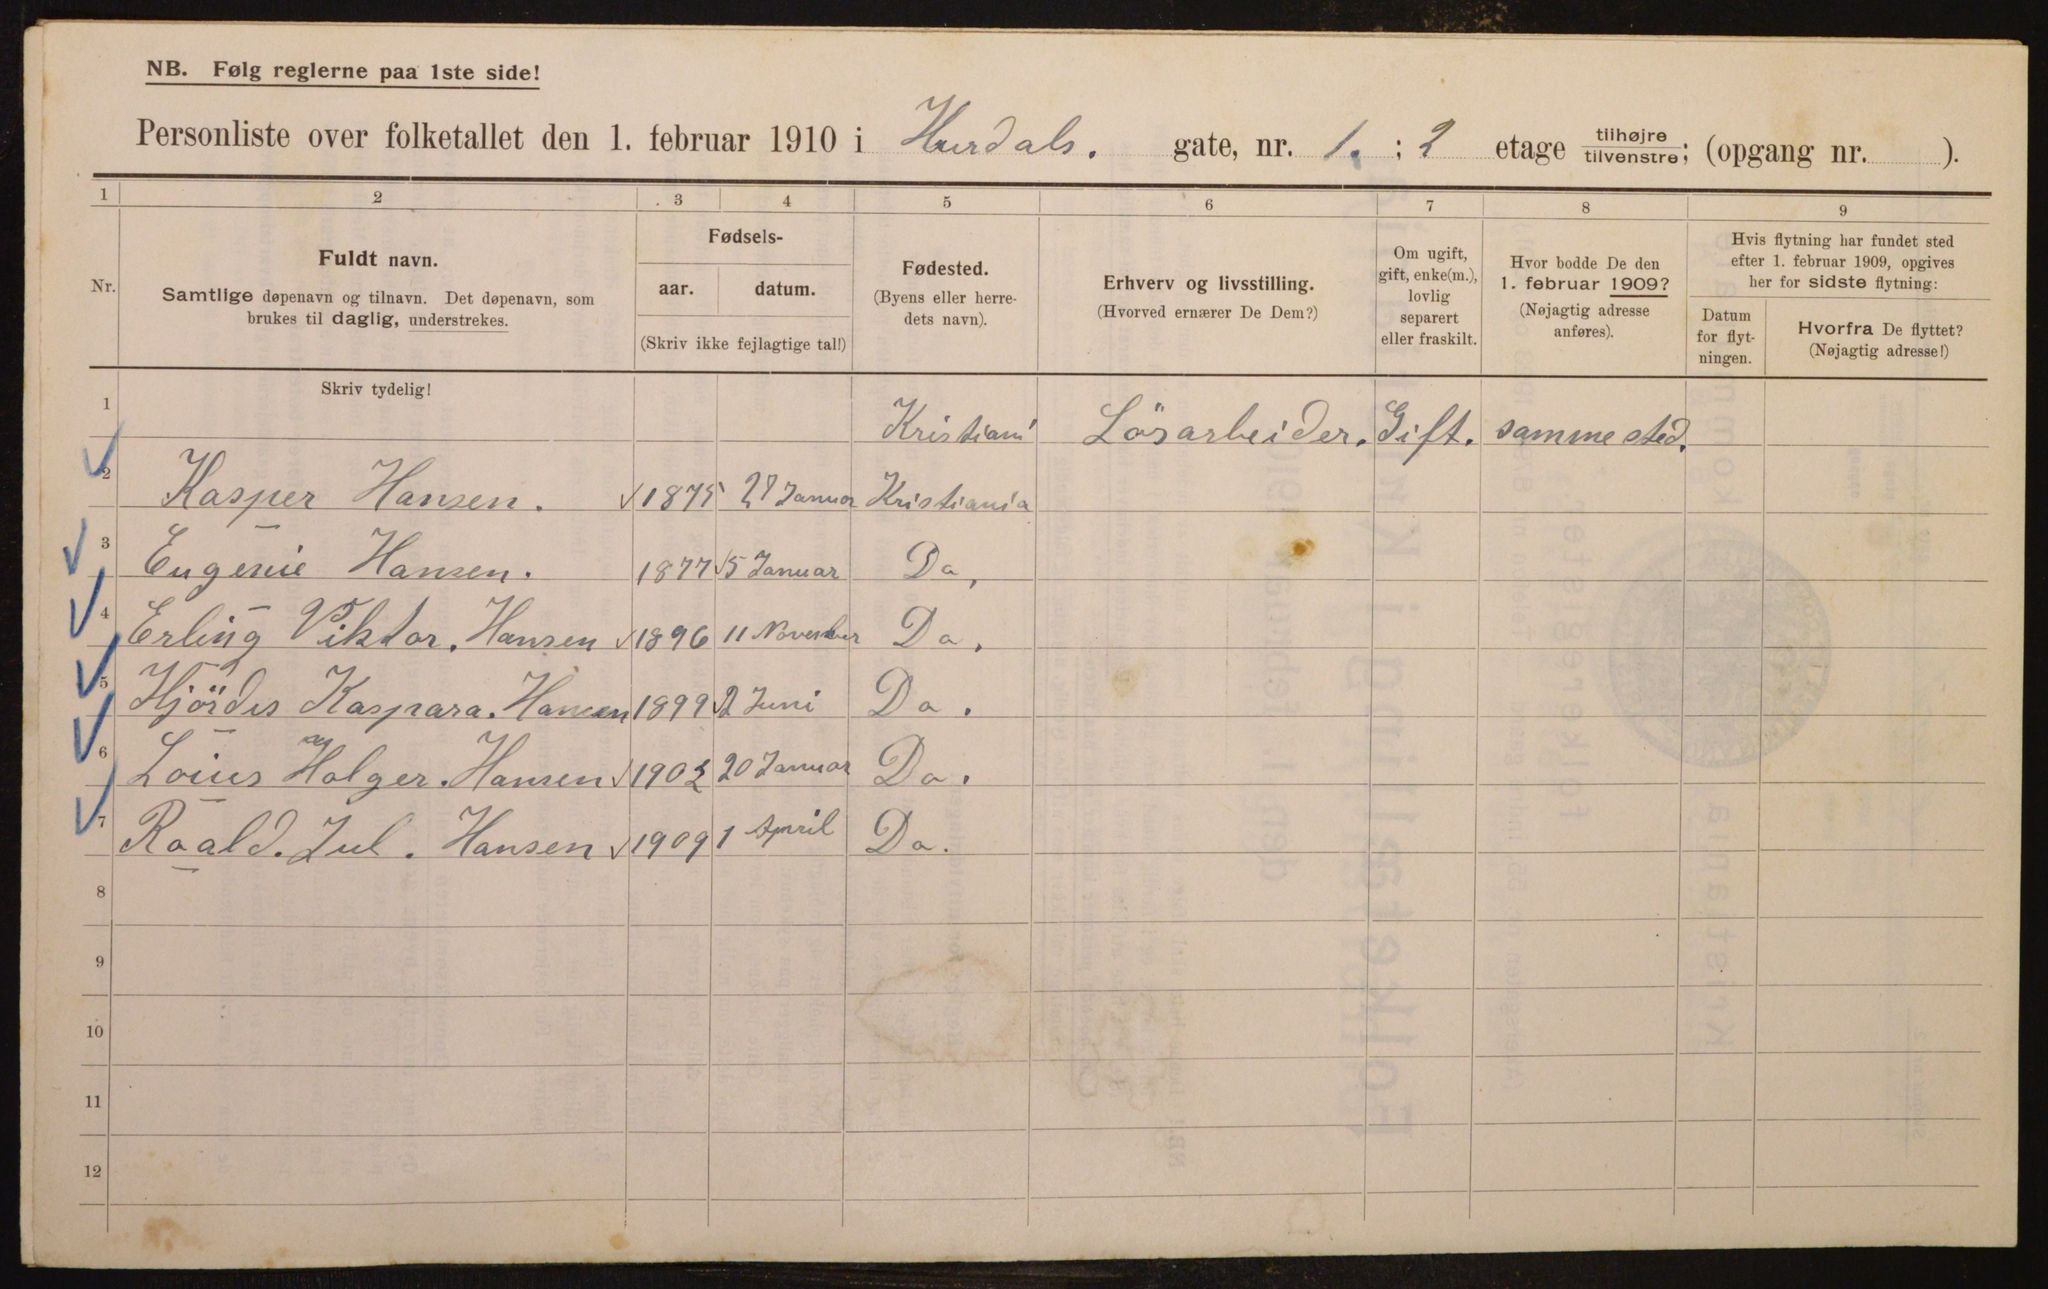 NB. Følg reglerne paa 1ste side!
Personliste over folketallet den 1. februar 1910 i Hurdals. gate, nr. 1. ; 2 etage tilhøjre/tilvenstre; (opgang nr. ).
1 2 3 4 5 6 7 8 9
Nr.
Fuldt navn.
Samtlige døpenavn og tilnavn. Det døpenavn, som
brukes til daglig, understrekes.
Fødsels-
aar. datum.
(Skriv ikke fejlagtige tal!)
Fødested.
(Byens eller herre-
dets navn).
Erhverv og livsstilling.
(Hvorved ernærer De Dem?)
Om ugift,
gift, enke(m.),
lovlig
separert
eller fraskilt.
Hvor bodde De den
1. februar 1909?
(Nøjagtig adresse
anføres).
Hvis flytning har fundet sted
efter 1. februar 1909, opgives
her for sidste flytning:
Datum
for flyt-
ningen.
Hvorfra De flyttet?
(Nøjagtig adresse!)
Skriv tydelig!
1 Kristiani Lösarbeider. Gift. samme sted.
2 Kasper Hansen. 1875 27 Januar Kristiania
3 Eugenie Hansen. 1877 5 Januar Do,
4 Erling Viktor. Hansen 1896 11 November Do.
5 Hjördis Kaspara. Hansen 1899 2 Juni Do.
6 Loius Holger. Hansen 1902 20 Januar Do.
7 Roald. Jul. Hansen 1909 1 April Do.
8
9
10
11
12